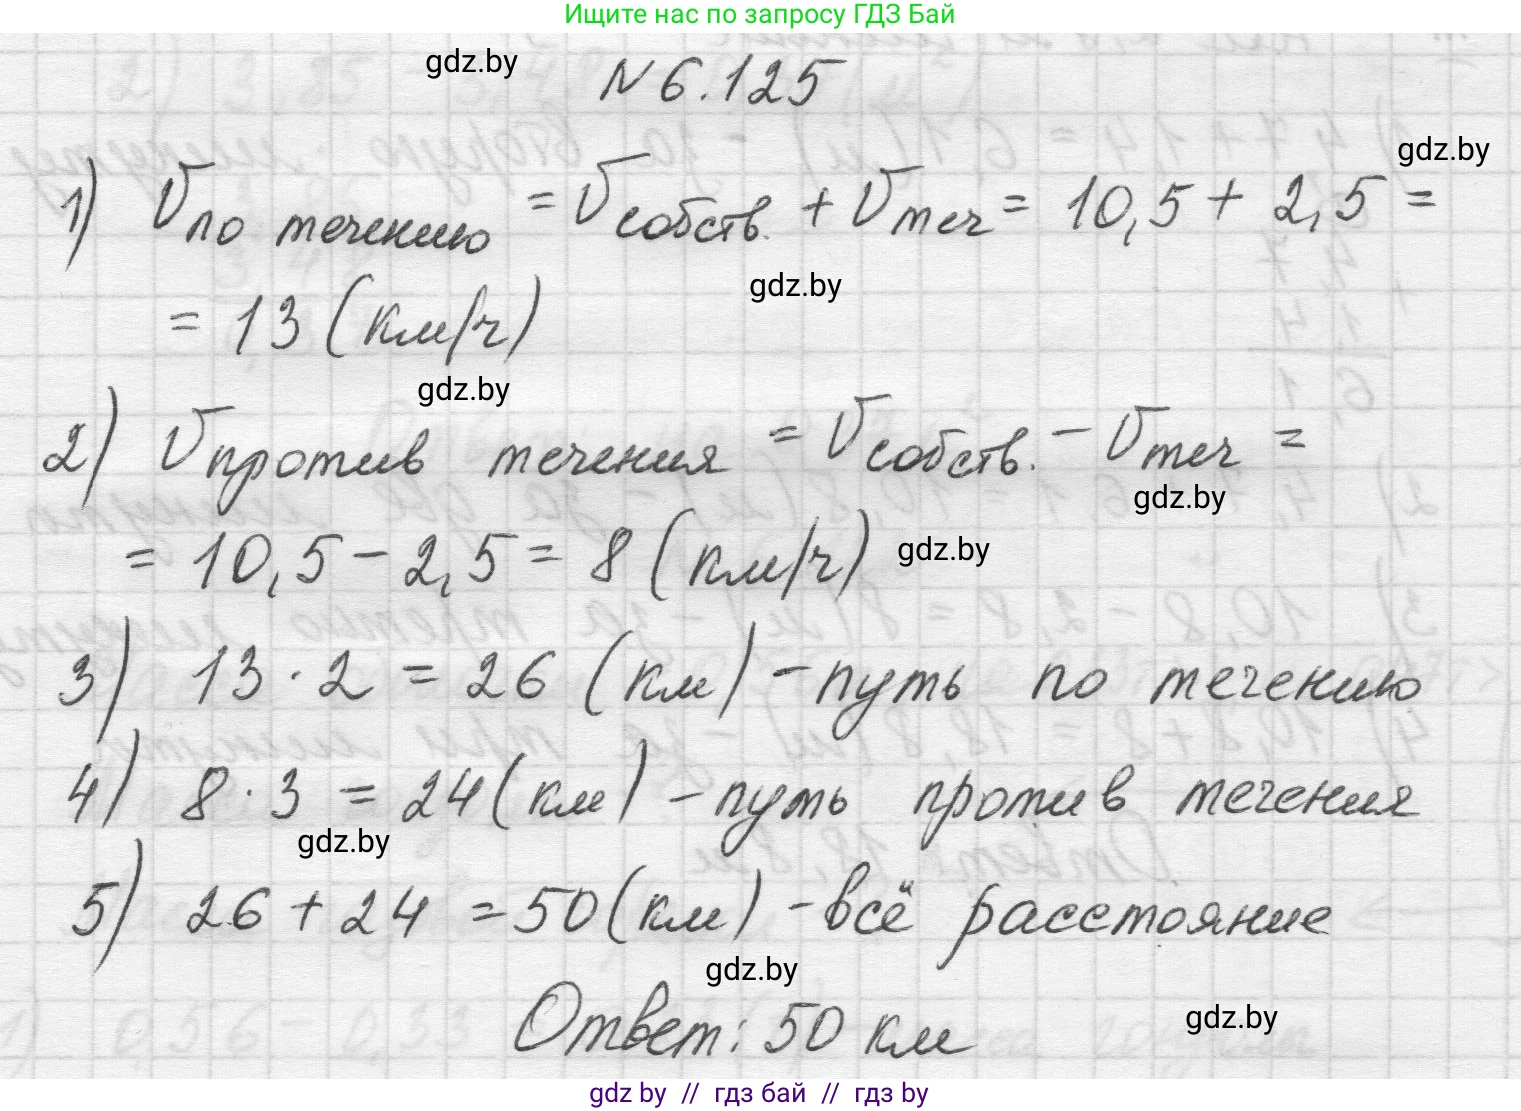 Ищите нас по запросу ГДЗ Бай
gdz.by
№ 6.125
gdz.by
1) Vпо течению = Vсобств. + Vтеч = 10,5 + 2,5 =
gdz.by
= 13 (км/ч)
gdz.by
2) Vпротив течения = Vсобств. - Vтеч =
gdz.by
= 10,5 - 2,5 = 8 (км/ч)
gdz.by
3) 13 · 2 = 26 (км) - путь по течению
4) 8 · 3 = 24 (км) - путь против течения
gdz.by
5) 26 + 24 = 50 (км) - всё расстояние
gdz.by
Ответ: 50 км
gdz.by
gdz by // гдз бай // гдз by